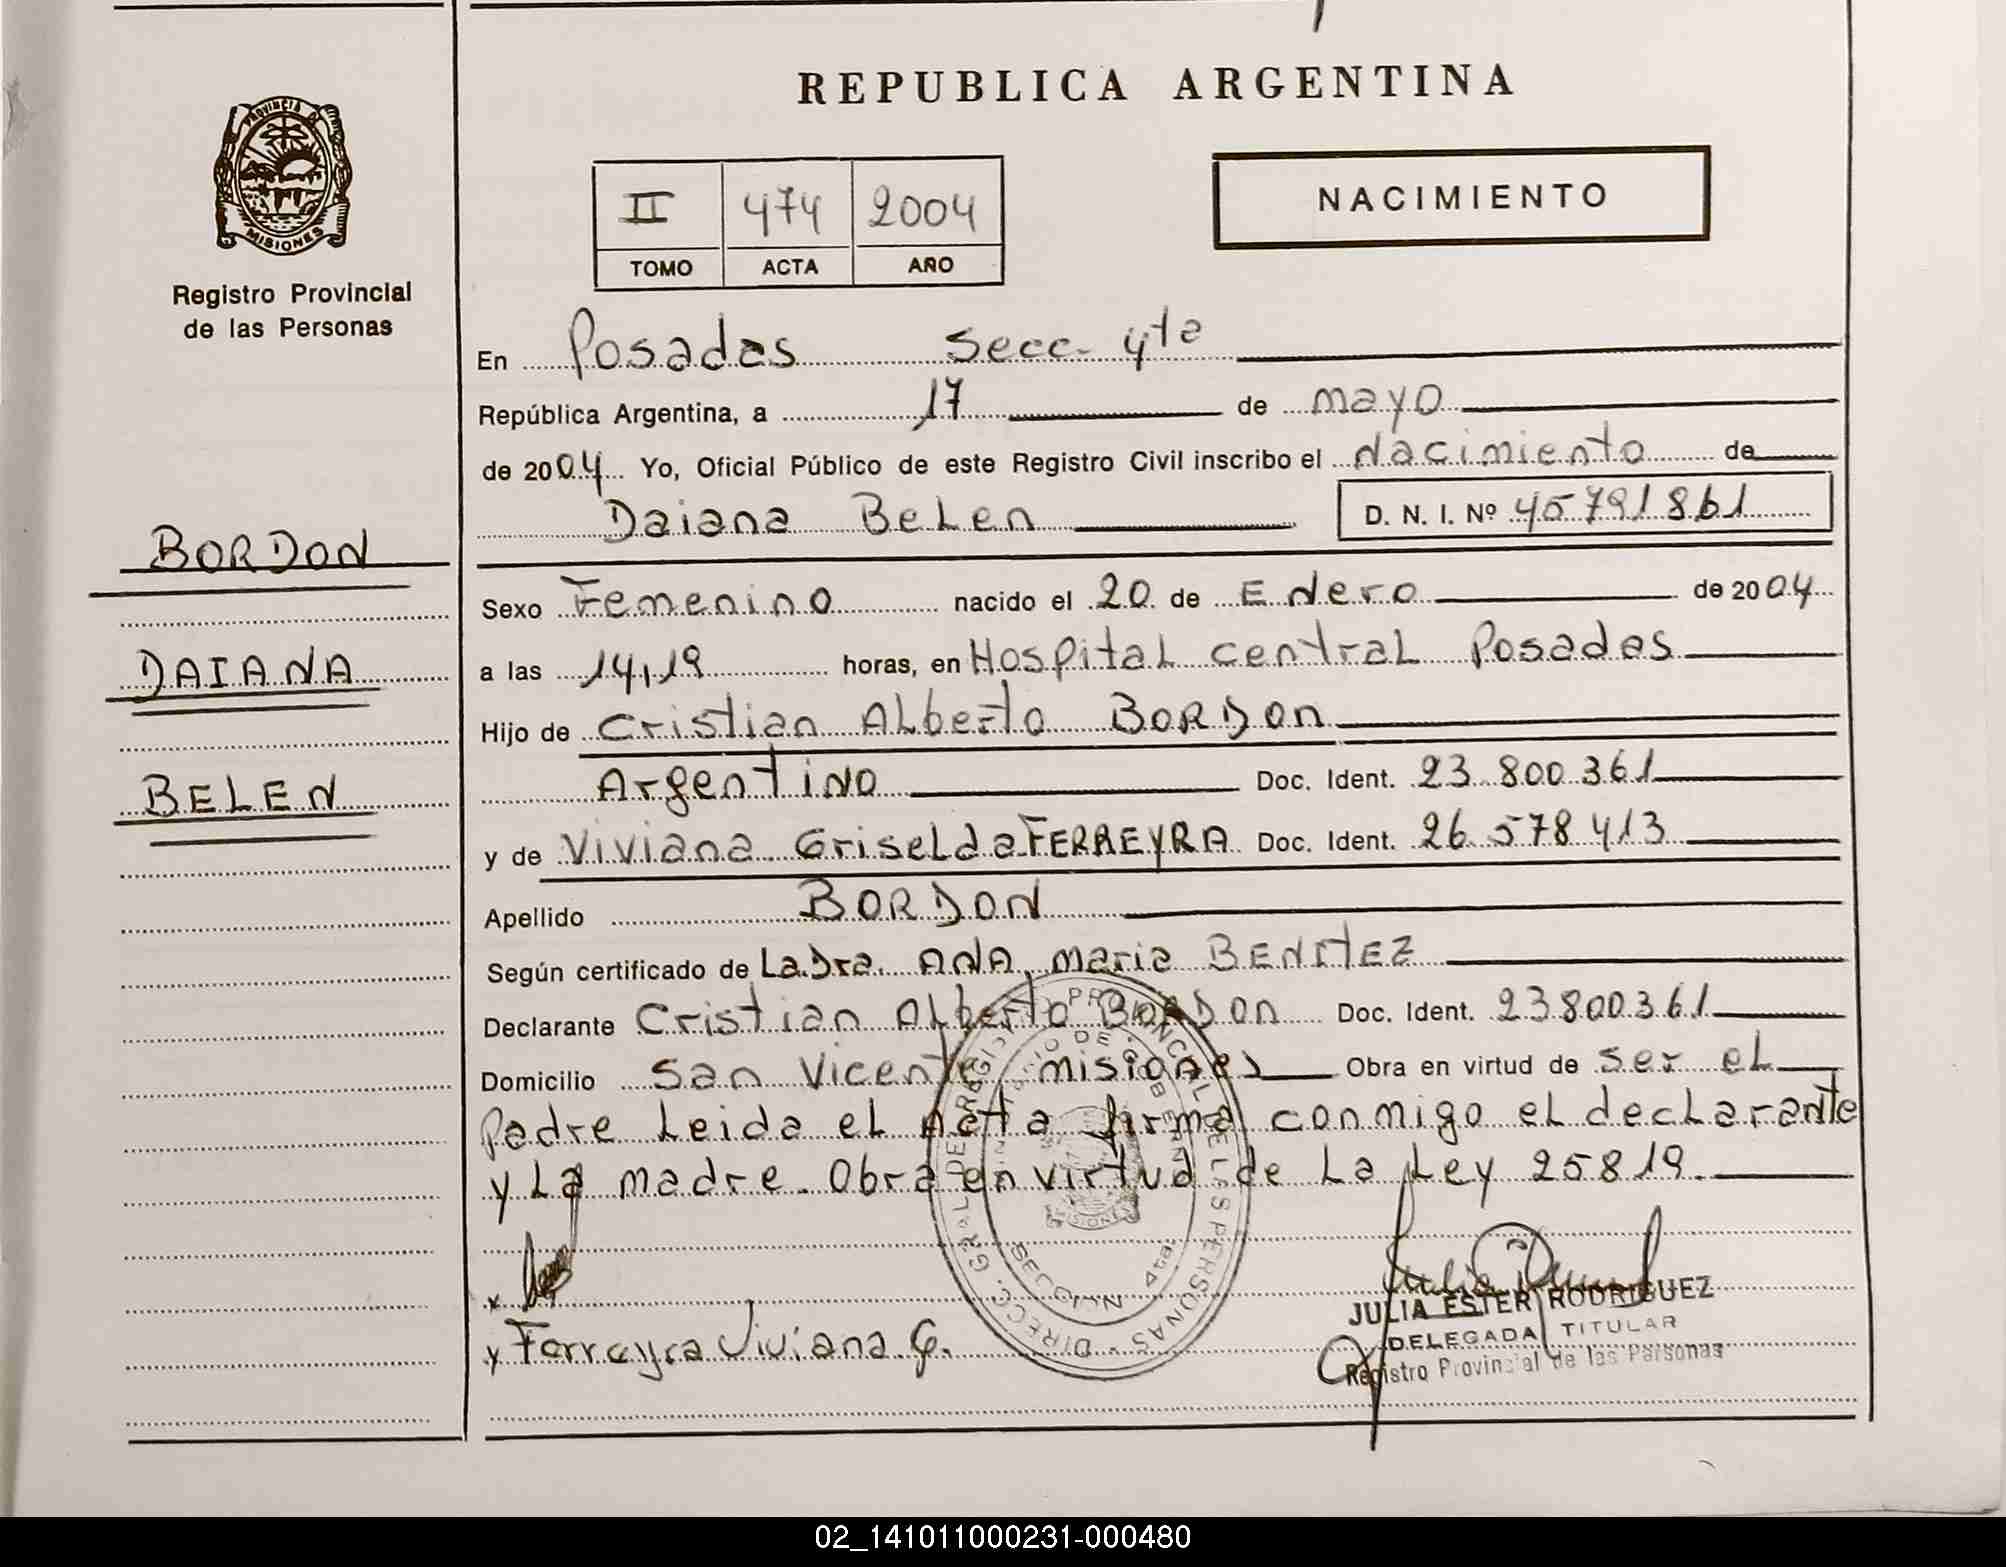 REPUBLICA ARGENTINA
PROVINCIA DE
MISIONES
Registro Provincial
de las Personas
II 474 2004
TOMO ACTA AÑO
NACIMIENTO
En Posadas Secc. 4ta
República Argentina, a 17 de mayo
de 2004 Yo, Oficial Público de este Registro Civil inscribo el Nacimiento de
Daiana Belen D. N. I. Nº 45791861
BORDON
DAIANA
BELEN
Sexo Femenino nacido el 20 de Enero de 2004
a las 14,19 horas, en Hospital central Posadas
Hijo de Cristian Alberto BORDON
Argentino Doc. Ident. 23 800 361
y de Viviana Griselda FERREYRA Doc. Ident. 26 578 413
Apellido BORDON
Según certificado de La Dra. ANA Maria BENITEZ
Declarante Cristian Alberto BORDON Doc. Ident. 23 800 361
Domicilio San Vicente misiones Obra en virtud de ser el
Padre Leida el Acta firma conmigo el declarante
y La madre. Obra en virtud de La Ley 25819.
DIRECC. GRAL DE REGISTRO PROVINCIAL DE LAS PERSONAS
MINISTERIO DE GOBIERNO
MISIONES
SECCION 4ta.
x
y Ferreyra Viviana G.
JULIA ESTER RODRIGUEZ
DELEGADA TITULAR
Registro Provincial de las Personas
02_141011000231-000480